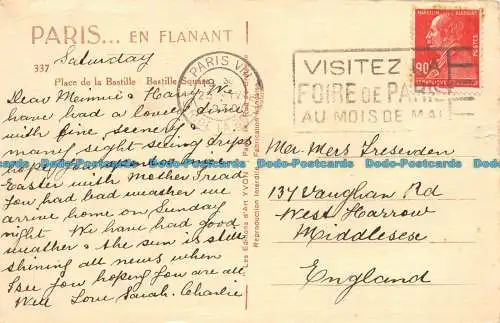 PARIS... EN FLANANT
337
Place de la Bastille Bastille Square
Saturday
Dear Minnie & Harry. We
have had a lovely time
with fine scenery &
many sight seeing trips
hope you
Easter with Mother
You had bad weather we
arrive home on Sunday
night. We have had good
weather & the sun is still
shining all news when
I see you hoping you are all
Well Love Sarah. Charlie
Les Editions d'Art YVON
Reproduction Interdite Fabrication
PARIS VII
VISITEZ LA
FOIRE DE PARIS
AU MOIS DE MAI
90
Mr. Mers
137 Vaughan Rd
West Harrow
Middlesex
England
Dodo-Postcards Dodo-Postcards Dodo-Postcards